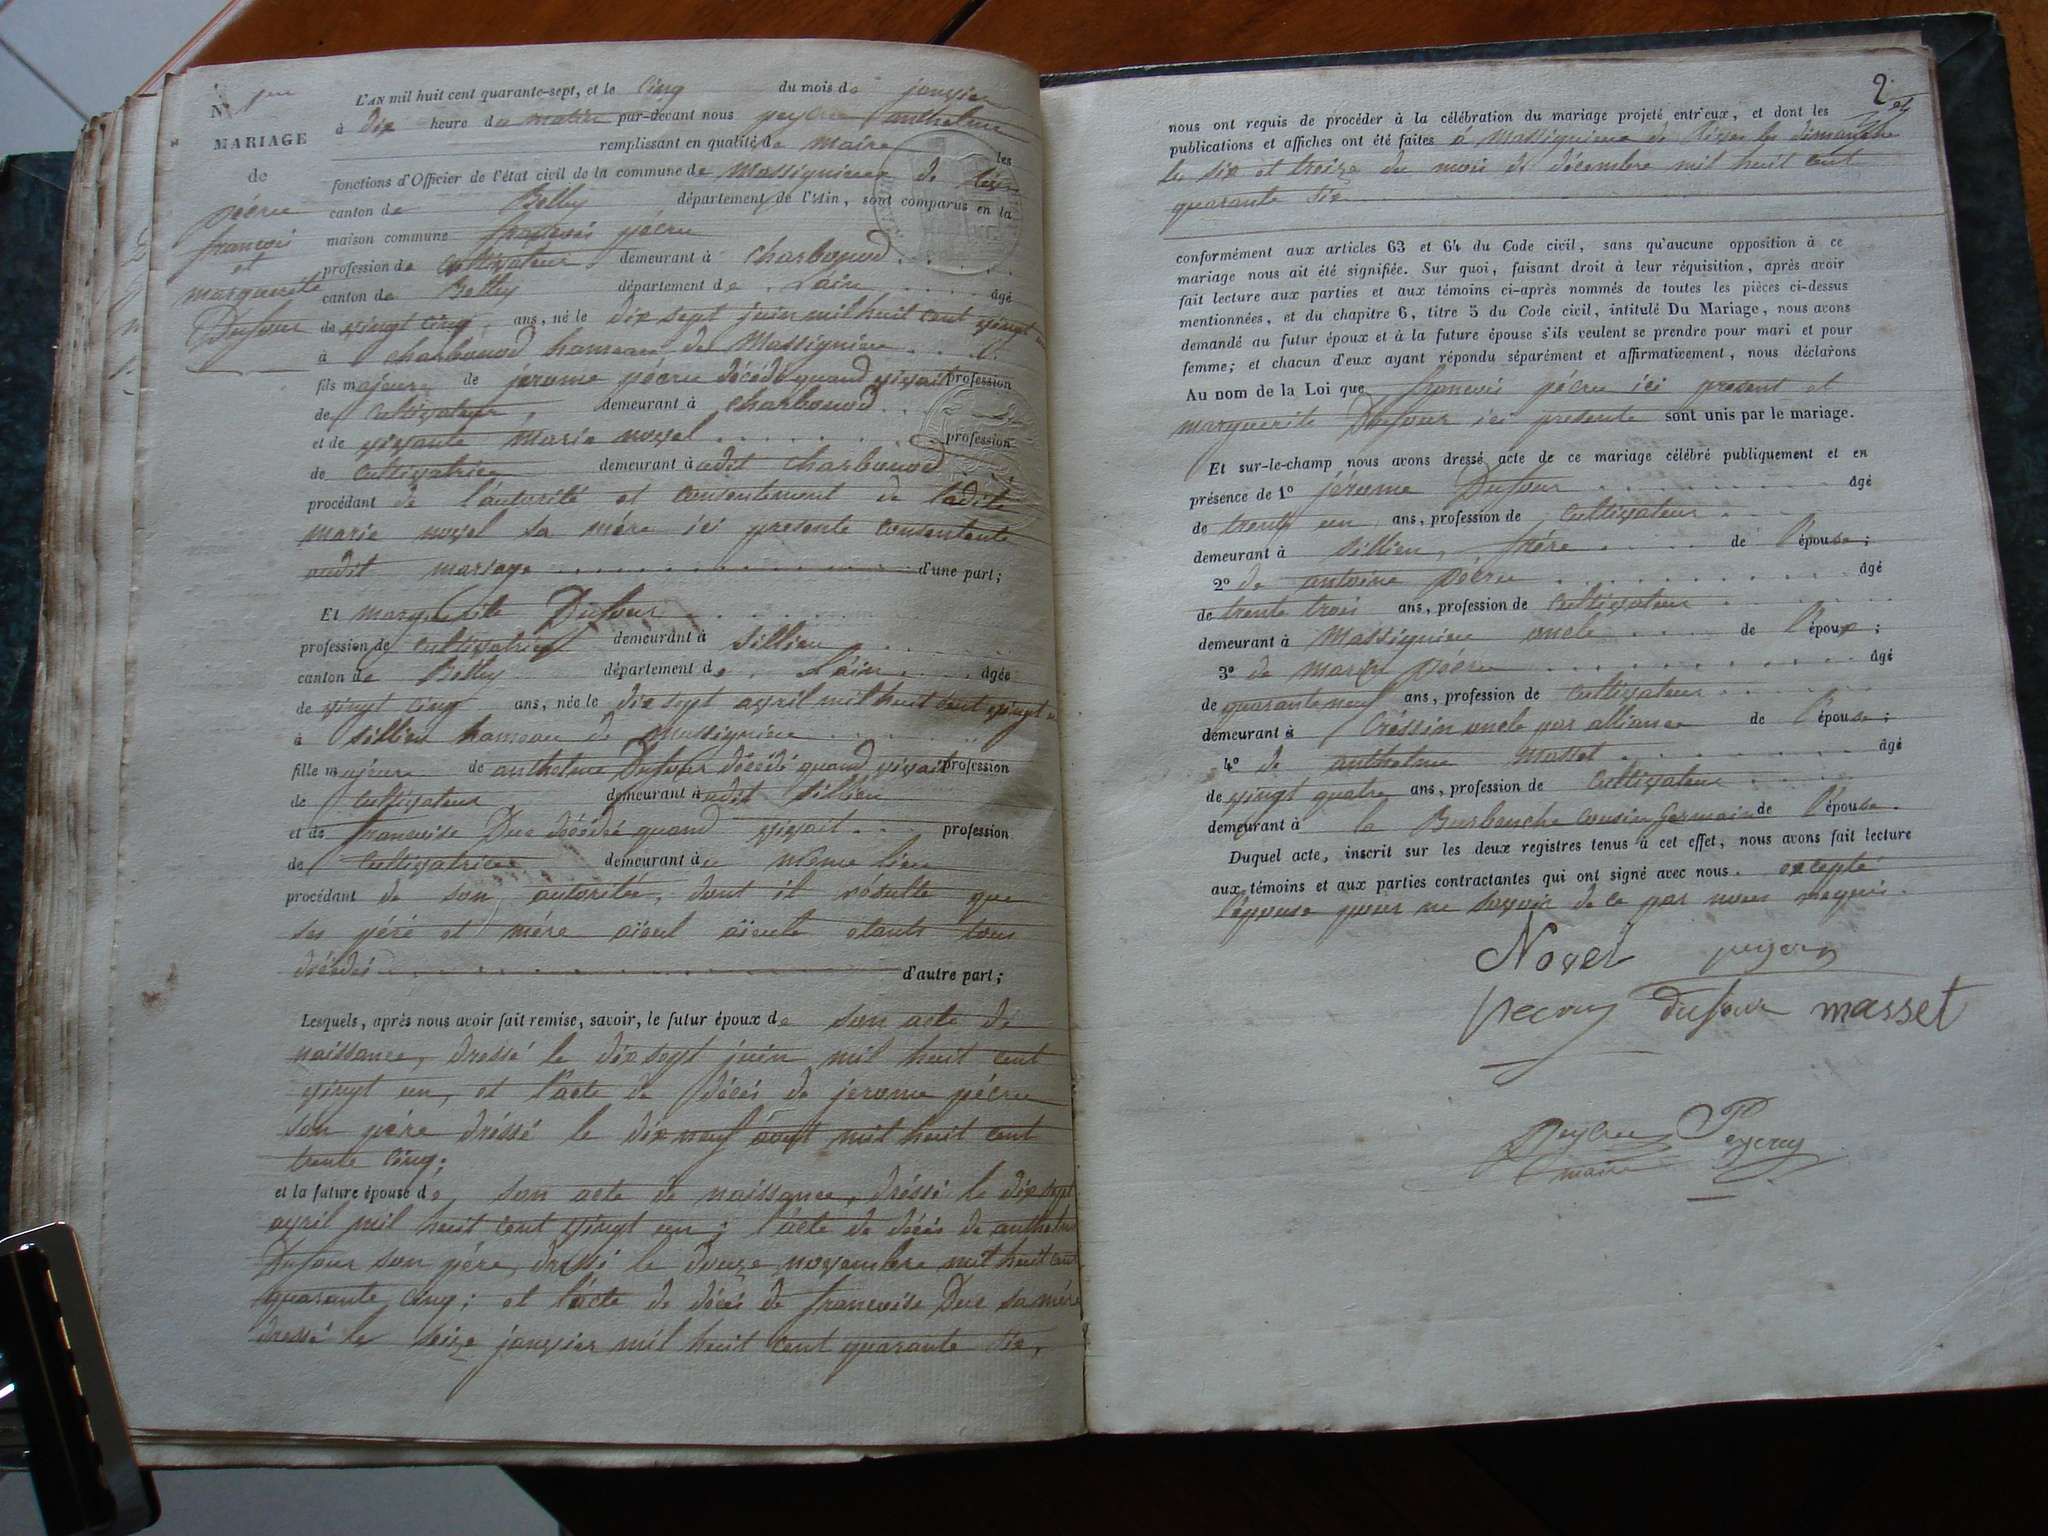 N.º 1er
MARIAGE
de
pécru
françois
et
marguerite
Dufour
L'AN mil huit cent quarante-sept, et le cinq du mois de janvier
à dix heure du matin par-devant nous peycru anthelme
remplissant en qualité de maire les
fonctions d'Officier de l'état civil de la commune de Massignieu de Rives
canton de Belley département de l'Ain, sont comparus en la
maison commune françois pécru
profession de cultivateur, demeurant à charbonod
canton de Belley département de L'ain âgé
de vingt cinq, ans, né le dix sept juin mil huit cent vingt un
à charbonod hameau de Massignieu
fils majeure de jerome pécru décédé quand vivait profession
de cultivateur, demeurant à charbonod
et de vivante marie novel profession
de cultivatrice demeurant à udit charbonod
procédant de l'autorité et consentement de ladite
marie novel sa mére ici presente consentente
audit mariage d'une part;
Et marguerite Dufour
profession de cultivatrice demeurant à sillieu
canton de Belley département de L'ain âgée
de vingt cinq ans, née le dix sept avril mil huit cent vingt un
à sillieu hameau de Massignieu
fille majeure de anthelme Dufour décédé quand vivait profession
de cultivateur demeurant à udit sillieu
et de francoise Duc décédée quand vivait profession
de cultivatrice demeurant à u même lieu
procédant de son autoritée, dont il résulte que
ses péré et mére aïeul aïeule etants tous
décédés d'autre part;
Lesquels, après nous avoir fait remise, savoir, le futur époux de son acte de
naissance, dressé le dix sept juin mil huit cent
vingt un, et l'acte de décés de jerome pécru
son père dréssé le dix neuf août mil huit cent
trente cinq;
et la future épouse de son acte de naissance, dréssé le dix sept
avril mil huit cent vingt un; l'acte de décés de anthelme
Dufour son pére, dressé le douze novembre mil huit cent
quarante cinq; et l'acte de décés de francoise Duc sa mére
dressé le seize janvier mil huit cent quarante six,
2
nous ont requis de procéder à la célébration du mariage projeté entr'eux, et dont les
publications et affiches ont été faites à Massignieu de Rives les dimanche
les six et treize du mois de décembre mil huit cent
quarante six
conformément aux articles 63 et 64 du Code civil, sans qu'aucune opposition à ce
mariage nous ait été signifiée. Sur quoi, faisant droit à leur réquisition, après avoir
fait lecture aux parties et aux témoins ci-après nommés de toutes les pièces ci-dessus
mentionnées, et du chapitre 6, titre 5 du Code civil, intitulé Du Mariage, nous avons
demandé au futur époux et à la future épouse s'ils veulent se prendre pour mari et pour
femme; et chacun d'eux ayant répondu séparément et affirmativement, nous déclarons
Au nom de la Loi que françois pécru ici present et
marguerite Dufour ici presente sont unis par le mariage.
Et sur-le-champ nous avons dressé acte de ce mariage célébré publiquement et en
présence de 1º jérome Dufour âgé
de trente un ans, profession de cultivateur
demeurant à sillieu, frére de l'épouse;
2º de antoine pécru âgé
de trente trois ans, profession de cultivateur
demeurant à Massignieu oncle de l'époux;
3º de marin pécru âgé
de quarante neuf ans, profession de cultivateur
demeurant à Créssin oncle par alliance de l'épouse;
4º de anthelme Masset âgé
de vingt quatre ans, profession de cultivateur
demeurant à la Burbanche cousin germain de l'épouse.
Duquel acte, inscrit sur les deux registres tenus à cet effet, nous avons fait lecture
aux témoins et aux parties contractantes qui ont signé avec nous excepté
l'épouse pour ne savoir de ce par nous requis.
Novel
pecru Dufour masset
Peycru
maire